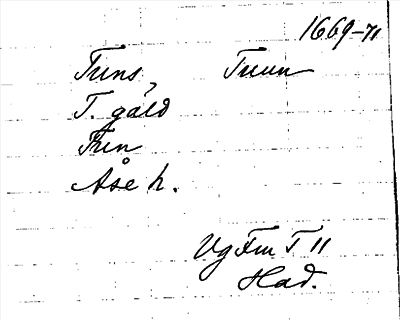 1669-71
Tuns, Tuun
T. gäld
Tun
Åse h.
Vg Fm T 11
Had.